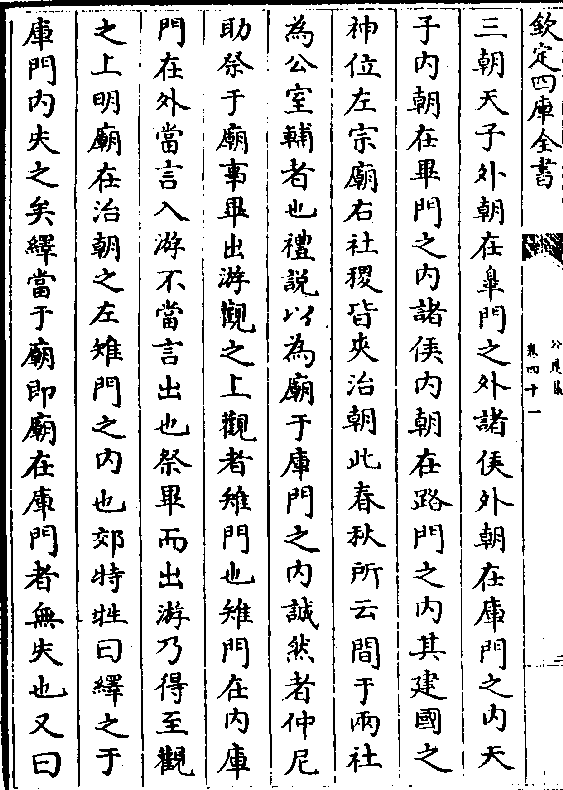 欽定四庫全書
卷四十一
三朝天子外朝在臯門之外諸侯外朝在庫門之内天
子内朝在畢門之内諸侯内朝在路門之内其建國之
神位左宗廟右社稷皆夾治朝此春秋所云間于兩社
為公室輔者也禮説以為廟于庫門之内誠然者仲尼
助祭于廟事畢出游觀之上觀者雉門也雉門在内庫
門在外當言入游不當言出也祭畢而出游乃得至觀
之上明廟在治朝之左雉門之内也郊特牲曰繹之于
庫門内失之矣繹當于廟即廟在庫門者無失也又曰